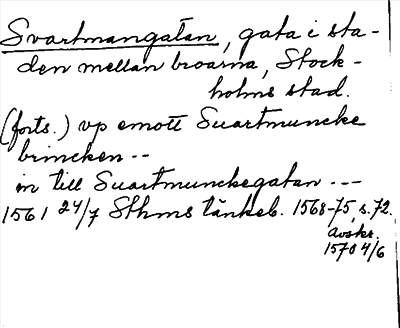 Svartmangatan, gata i sta-
den mellan broarna, Stock-
holms stad.
(forts.) vp emott Suartmuncke
brincken --
in till Suartmunckegatan ---
1561 24/7 Sthms tänkeb. 1568-75, s. 72.
Avskr.
1570 4/6